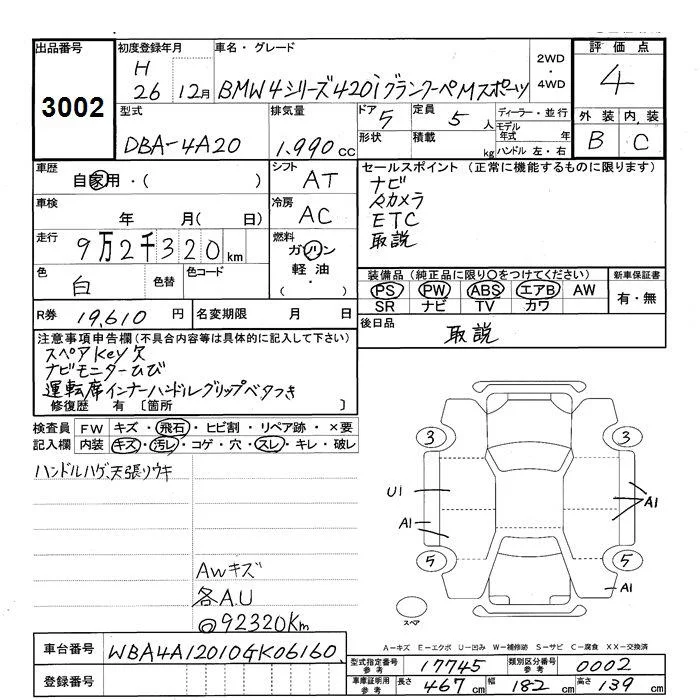 出品番号 初度登録年月 車名・グレード 2WD ・ 4WD 評価点
3002 H 26 12月 BMW4シリーズ420iグランクーペMスポーツ 4
型式 排気量 ドア 5 定員 5人 ディーラー・並行 外装 内装
DBA-4A20 1.990cc 形状 積載 kg モデル年式 年 B C
ハンドル 左・右
車歴 自家用・( ) シフト AT セールスポイント (正常に機能するものに限ります)
ナビ
車検 年 月( 日) 冷房 AC
カメラ
ETC
取説
走行 9万2千320km 燃料 ガソリン 軽油・( )
色 白 色替 色コード
装備品 (純正品に限り○をつけてください) 新車保証書
PS PW ABS エアB AW 有・無
SR ナビ TV カワ
R券 19,610円 名変期限 月 日
後日品 取説
注意事項申告欄(不具合内容等は具体的に記入して下さい)
スペアKey欠
ナビモニターひび
運転席インナーハンドルグリップベタつき
修復歴 有 [箇所 ]
検査員 FW キズ・飛石・ヒビ割・リペア跡・×要
記入欄 内装 キズ・汚レ・コゲ・穴・スレ・キレ・破レ
ハンドルハゲ、天張リウキ
AWキズ
各A.U
◎92320Km
3 3
U1 A1
A1
5 5
A1
スペア
A-キズ E-エクボ U-凹み W-補修跡 S-サビ C-腐食 XX-交換済
車台番号 WBA4A12010GK06160
型式指定番号 参考 17745 類別区分番号 参考 0002
登録番号
車庫証明用 参考 長さ 467cm 幅 182cm 高さ 139cm